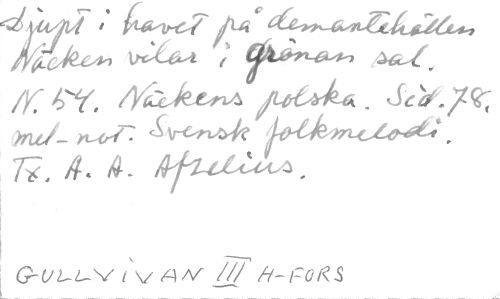 Djupt i havet på demantehällen
Näcken vilar i grönan sal.
N. 54. Näckens polska. Sid. 78.
mel-not. Svensk folkmelodi.
Tx. A. A. Afzelius.
GULLVIVAN III H-FORS